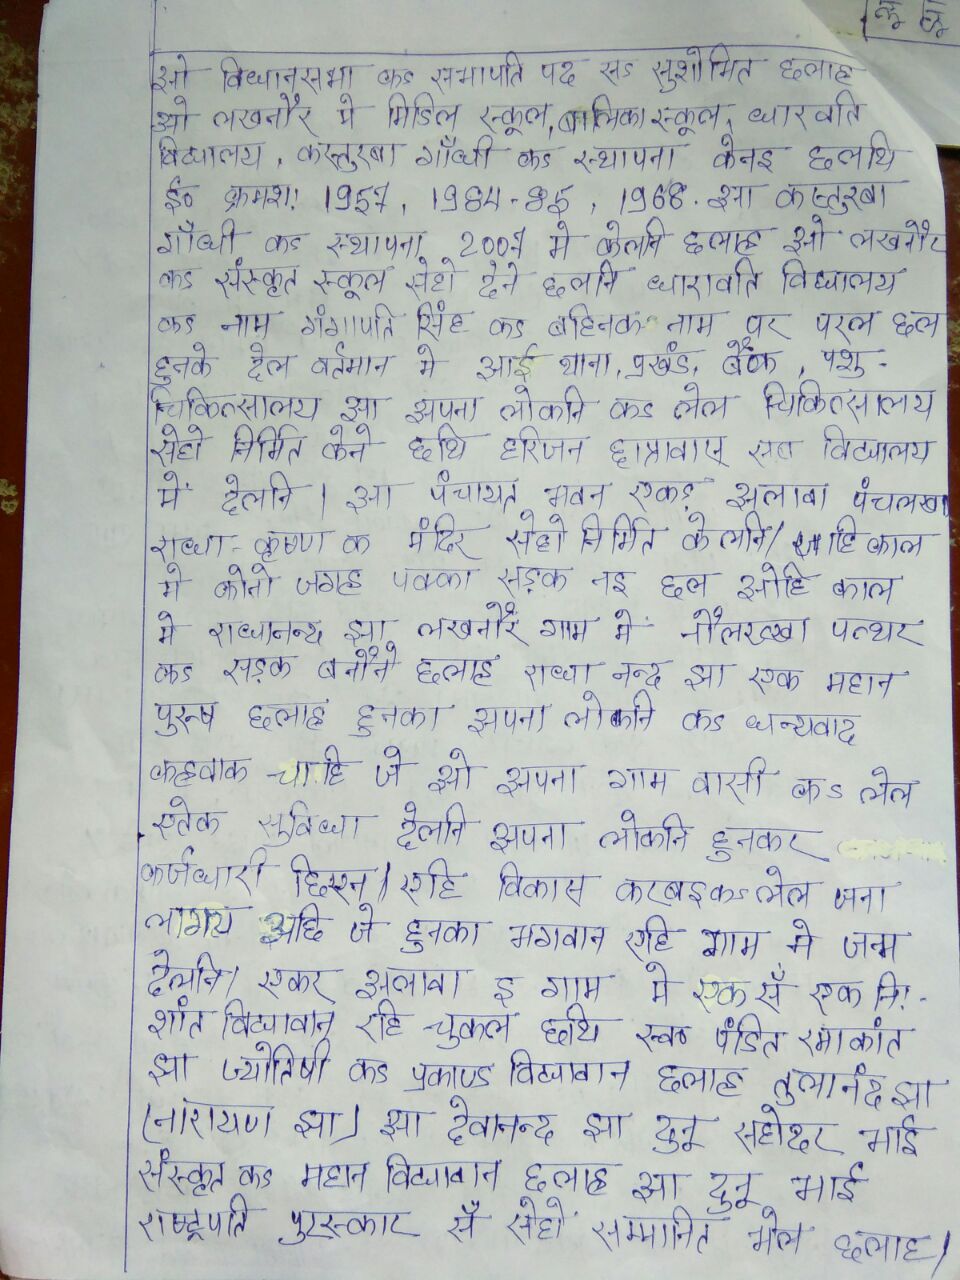 ओ विधानसभा कऽ सभापति पद सऽ सुशोभित छलाह
ओ लखनौर मे मिडिल स्कूल, बालिका स्कूल, धारवति
विद्यालय, कस्तुरबा गाँधी कऽ स्थापना केनइ छलथि
ई० क्रमश: 1957, 1984-85, 1968. आ कस्तुरबा
गाँधी कऽ स्थापना 2007 मे केलनि छलाह ओ लखनौर
कऽ संस्कृत स्कूल सेहो देने छलनि धारावति विद्यालय
कऽ नाम गंगापति सिंह कऽ बहिनक नाम पर परल छल
हुनके देल वर्तमान मे आई थाना, प्रखंड, बैंक, पशु-
चिकित्सालय आ अपना लोकनि कऽ लेल चिकित्सालय
सेहो निर्मित केने छथि हरिजन छात्रावास् सब विद्यालय
में देलनि। आ पंचायत भवन एकर अलावा पंचलखा
राधा-कृष्ण क मंदिर सेहो निर्मित केलनि। जाहि काल
मे कोनो जगह पक्का सड़क नइ छल ओहि काल
मे राधानन्द झा लखनौर गाम में नौलख्खा पत्थर
कऽ सड़क बनौने छलाह राधा नन्द झा एक महान
पुरूष छलाह हुनका अपना लोकनि कऽ धन्यवाद
कहवाक चाहि जे ओ अपना गाम वासी कऽ लेल
एतेक सुविधा देलनि अपना लोकनि हुनकर
कर्जधारी छिएन। एहि विकास करबइकऽ लेल जना
लागय अछि जे हुनका भगवान एहि गाम मे जन्म
देलनि। एकर अलावा इ गाम मे एक सँ एक नि:-
शांत विद्यावान् रहि चुकल छथि स्व० पंडित रमाकांत
झा ज्योतिषी कऽ प्रकाण्ड विद्यावान छलाह तुलानंद झा
(नारायण झा) आ देवानन्द झा दुनू सहोदर भाई
संस्कृत कऽ महान विद्यावान छलाह आ दुनू भाई
राष्ट्रपति पुरस्कार सँ सेहो सम्मानित भेल छलाह।